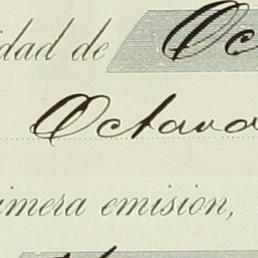 idad de Oc
Octava
imera emisión,